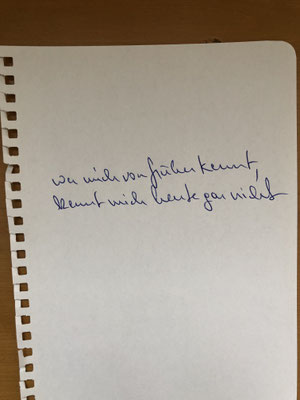 wer mich von früher kennt,
kennt mich heute gar nicht